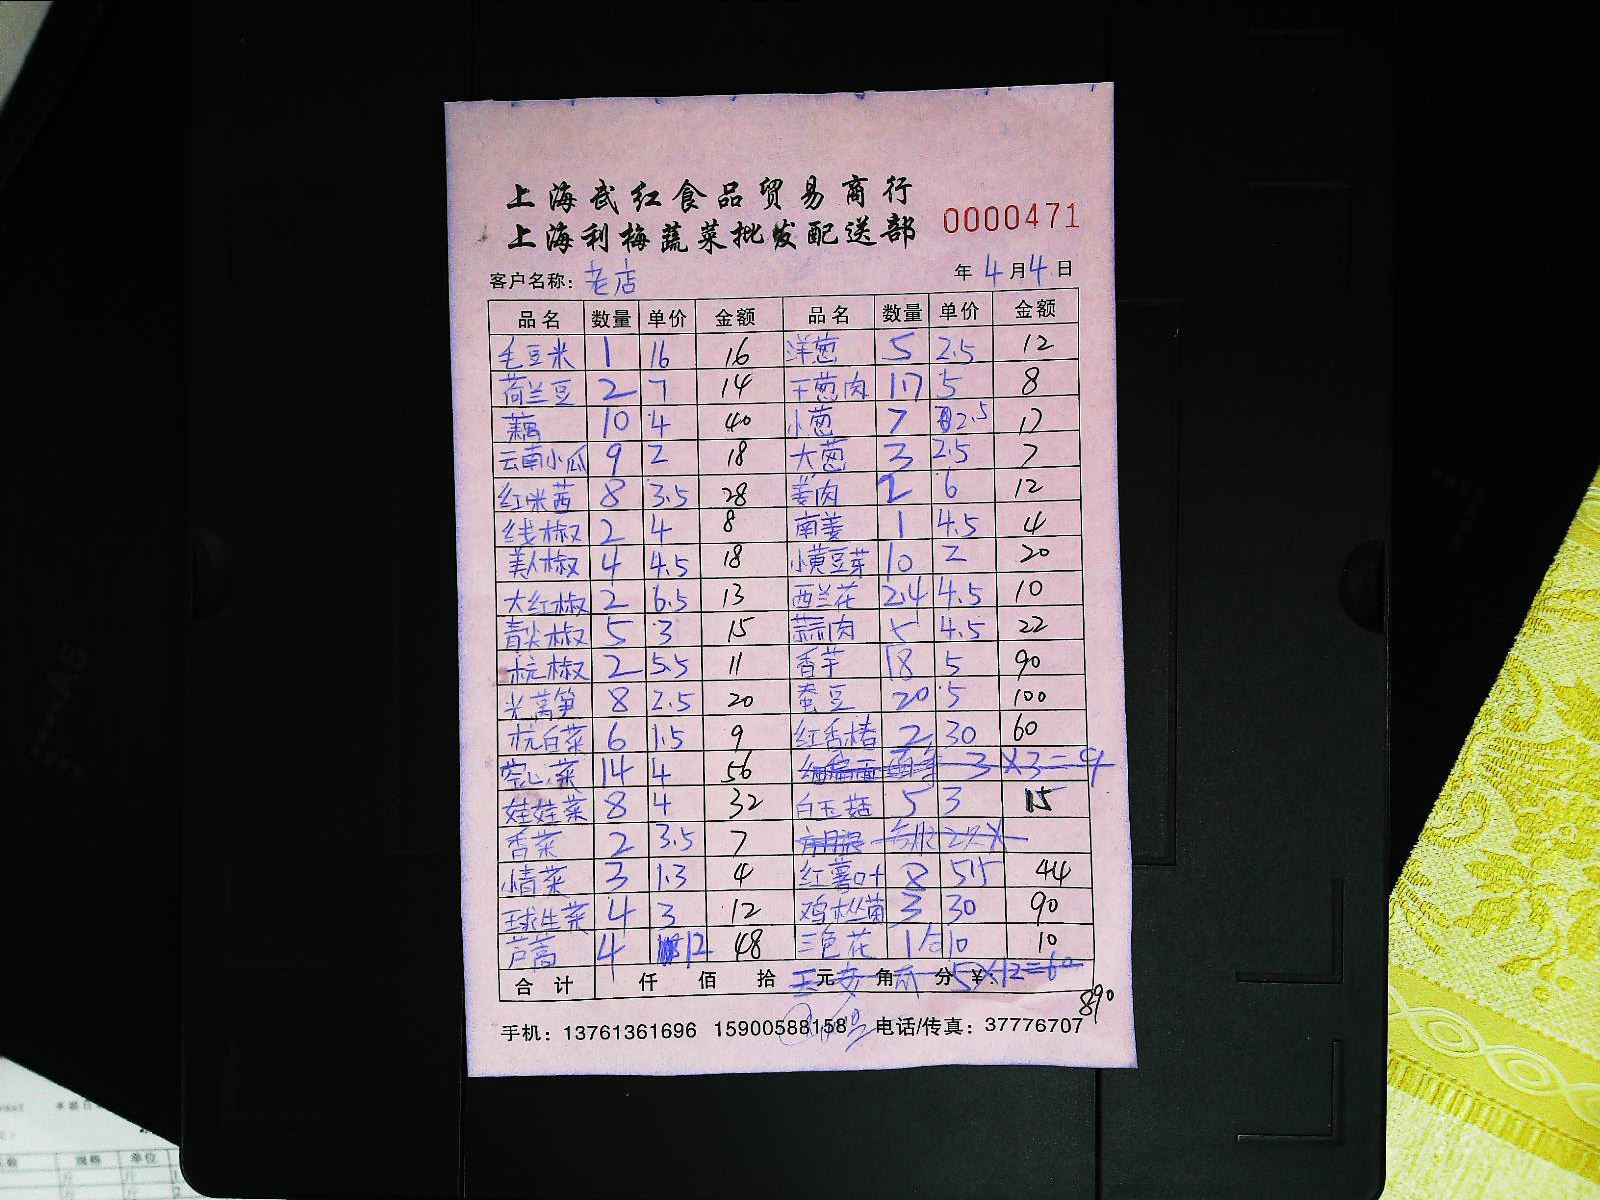 上海武红食品贸易商行
上海利梅蔬菜批发配送部 0000471
客户名称: 老店 年 4 月 4 日
品名 数量 单价 金额 品名 数量 单价 金额
毛豆米 1 16 16 洋葱 5 2.5 12
荷兰豆 2 7 14 干葱肉 1.7 5 8
藕 10 4 40 小葱 7 2.5 17
云南小瓜 9 2 18 大葱 3 2.5 7
红米茜 8 3.5 28 姜肉 2 6 12
线椒 2 4 8 南姜 1 4.5 4
美人椒 4 4.5 18 小黄豆芽 10 2 20
大红椒 2 6.5 13 西兰花 2.4 4.5 10
青尖椒 5 3 15 蒜肉 5 4.5 22
杭椒 2 5.5 11 香芋 18 5 90
光莴笋 8 2.5 20 蚕豆 20 5 100
杭白菜 6 1.5 9 红香椿 2 30 60
空心菜 14 4 56 3×3=9
娃娃菜 8 4 32 白玉菇 5 3 15
香菜 2 3.5 7
小青菜 3 1.3 4 红薯叶 8 5.5 44
球生菜 4 3 12 鸡枞菌 3 30 90
芦蒿 4 12 48 三色花 1合 10 10
合计 仟 佰 拾 元 角 分 ¥: 5×12=60
890
手机: 13761361696 15900588158 电话/传真: 37776707